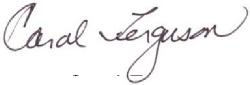 Carol Ferguson